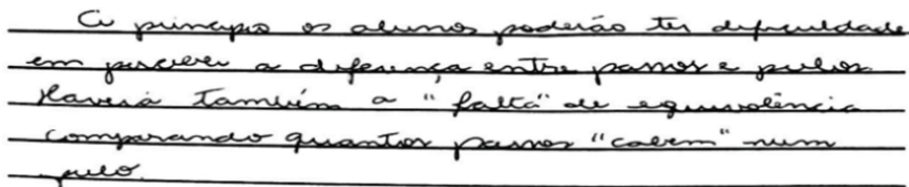 A princípio os alunos poderão ter dificuldade
em perceber a diferença entre passos e pulos.
Haveria também a "falta" de equivalência
comparando quantos passos "cabem" num
pulo.